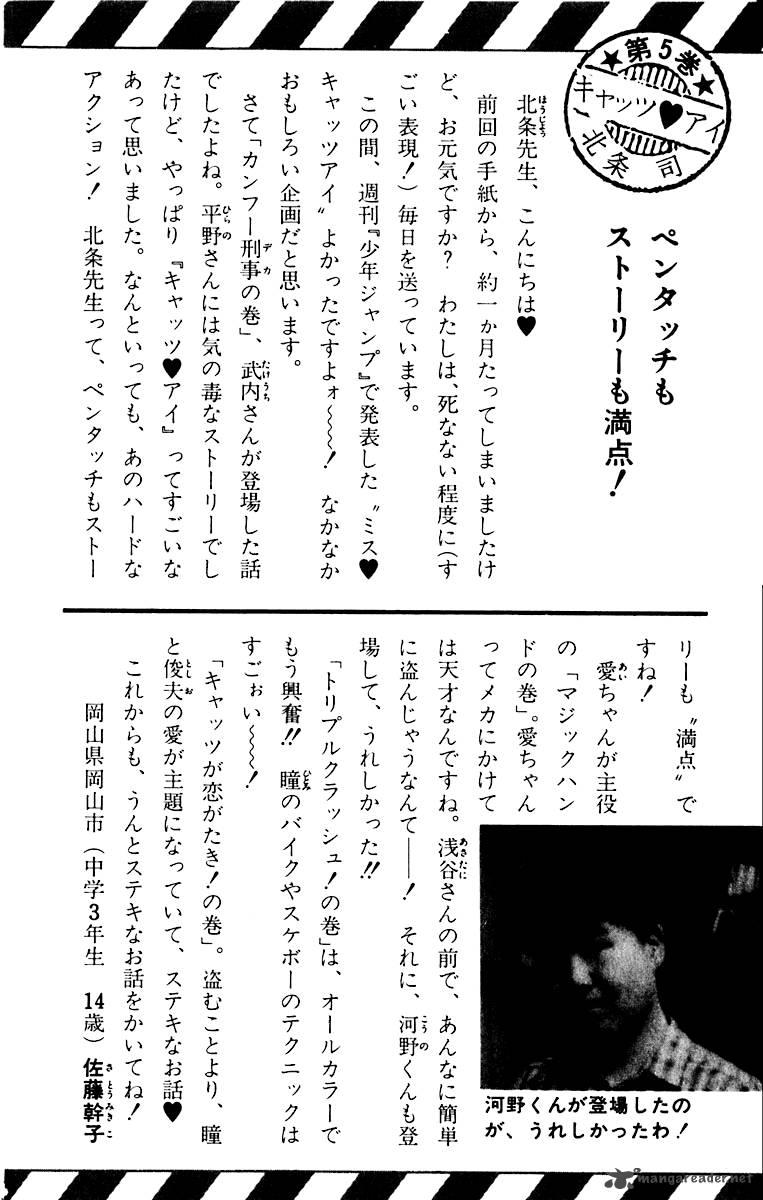 ★第5巻★
キャッツ♥アイ
～北条 司
ペンタッチも
ストーリーも満点！
北条先生、こんにちは♥
前回の手紙から、約一か月たってしまいましたけ
ど、お元気ですか？　わたしは、死なない程度に（す
ごい表現！）毎日を送っています。
この間、週刊『少年ジャンプ』で発表した〝ミス♥
キャッツアイ〟よかったですよォ～～～！　なかなか
おもしろい企画だと思います。
さて「カンフー刑事の巻」、武内さんが登場した話
でしたよね。平野さんには気の毒なストーリーでし
たけど、やっぱり『キャッツ♥アイ』ってすごいな
あって思いました。なんといっても、あのハードな
アクション！　北条先生って、ペンタッチもストー
リーも〝満点〟で
すね！
愛ちゃんが主役
の「マジックハン
ドの巻」。愛ちゃん
ってメカにかけて
は天才なんですね。浅谷さんの前で、あんなに簡単
に盗んじゃうなんて――！　それに、河野くんも登
場して、うれしかった!!
「トリプルクラッシュ！の巻」は、オールカラーで
もう興奮!!　瞳のバイクやスケボーのテクニックは
すごぉい～～～！
「キャッツが恋がたき！の巻」。盗むことより、瞳
と俊夫の愛が主題になっていて、ステキなお話♥
これからも、うんとステキなお話をかいてね！
岡山県岡山市（中学3年生　14歳）佐藤幹子
河野くんが登場したの
が、うれしかったわ！
mangareader.net